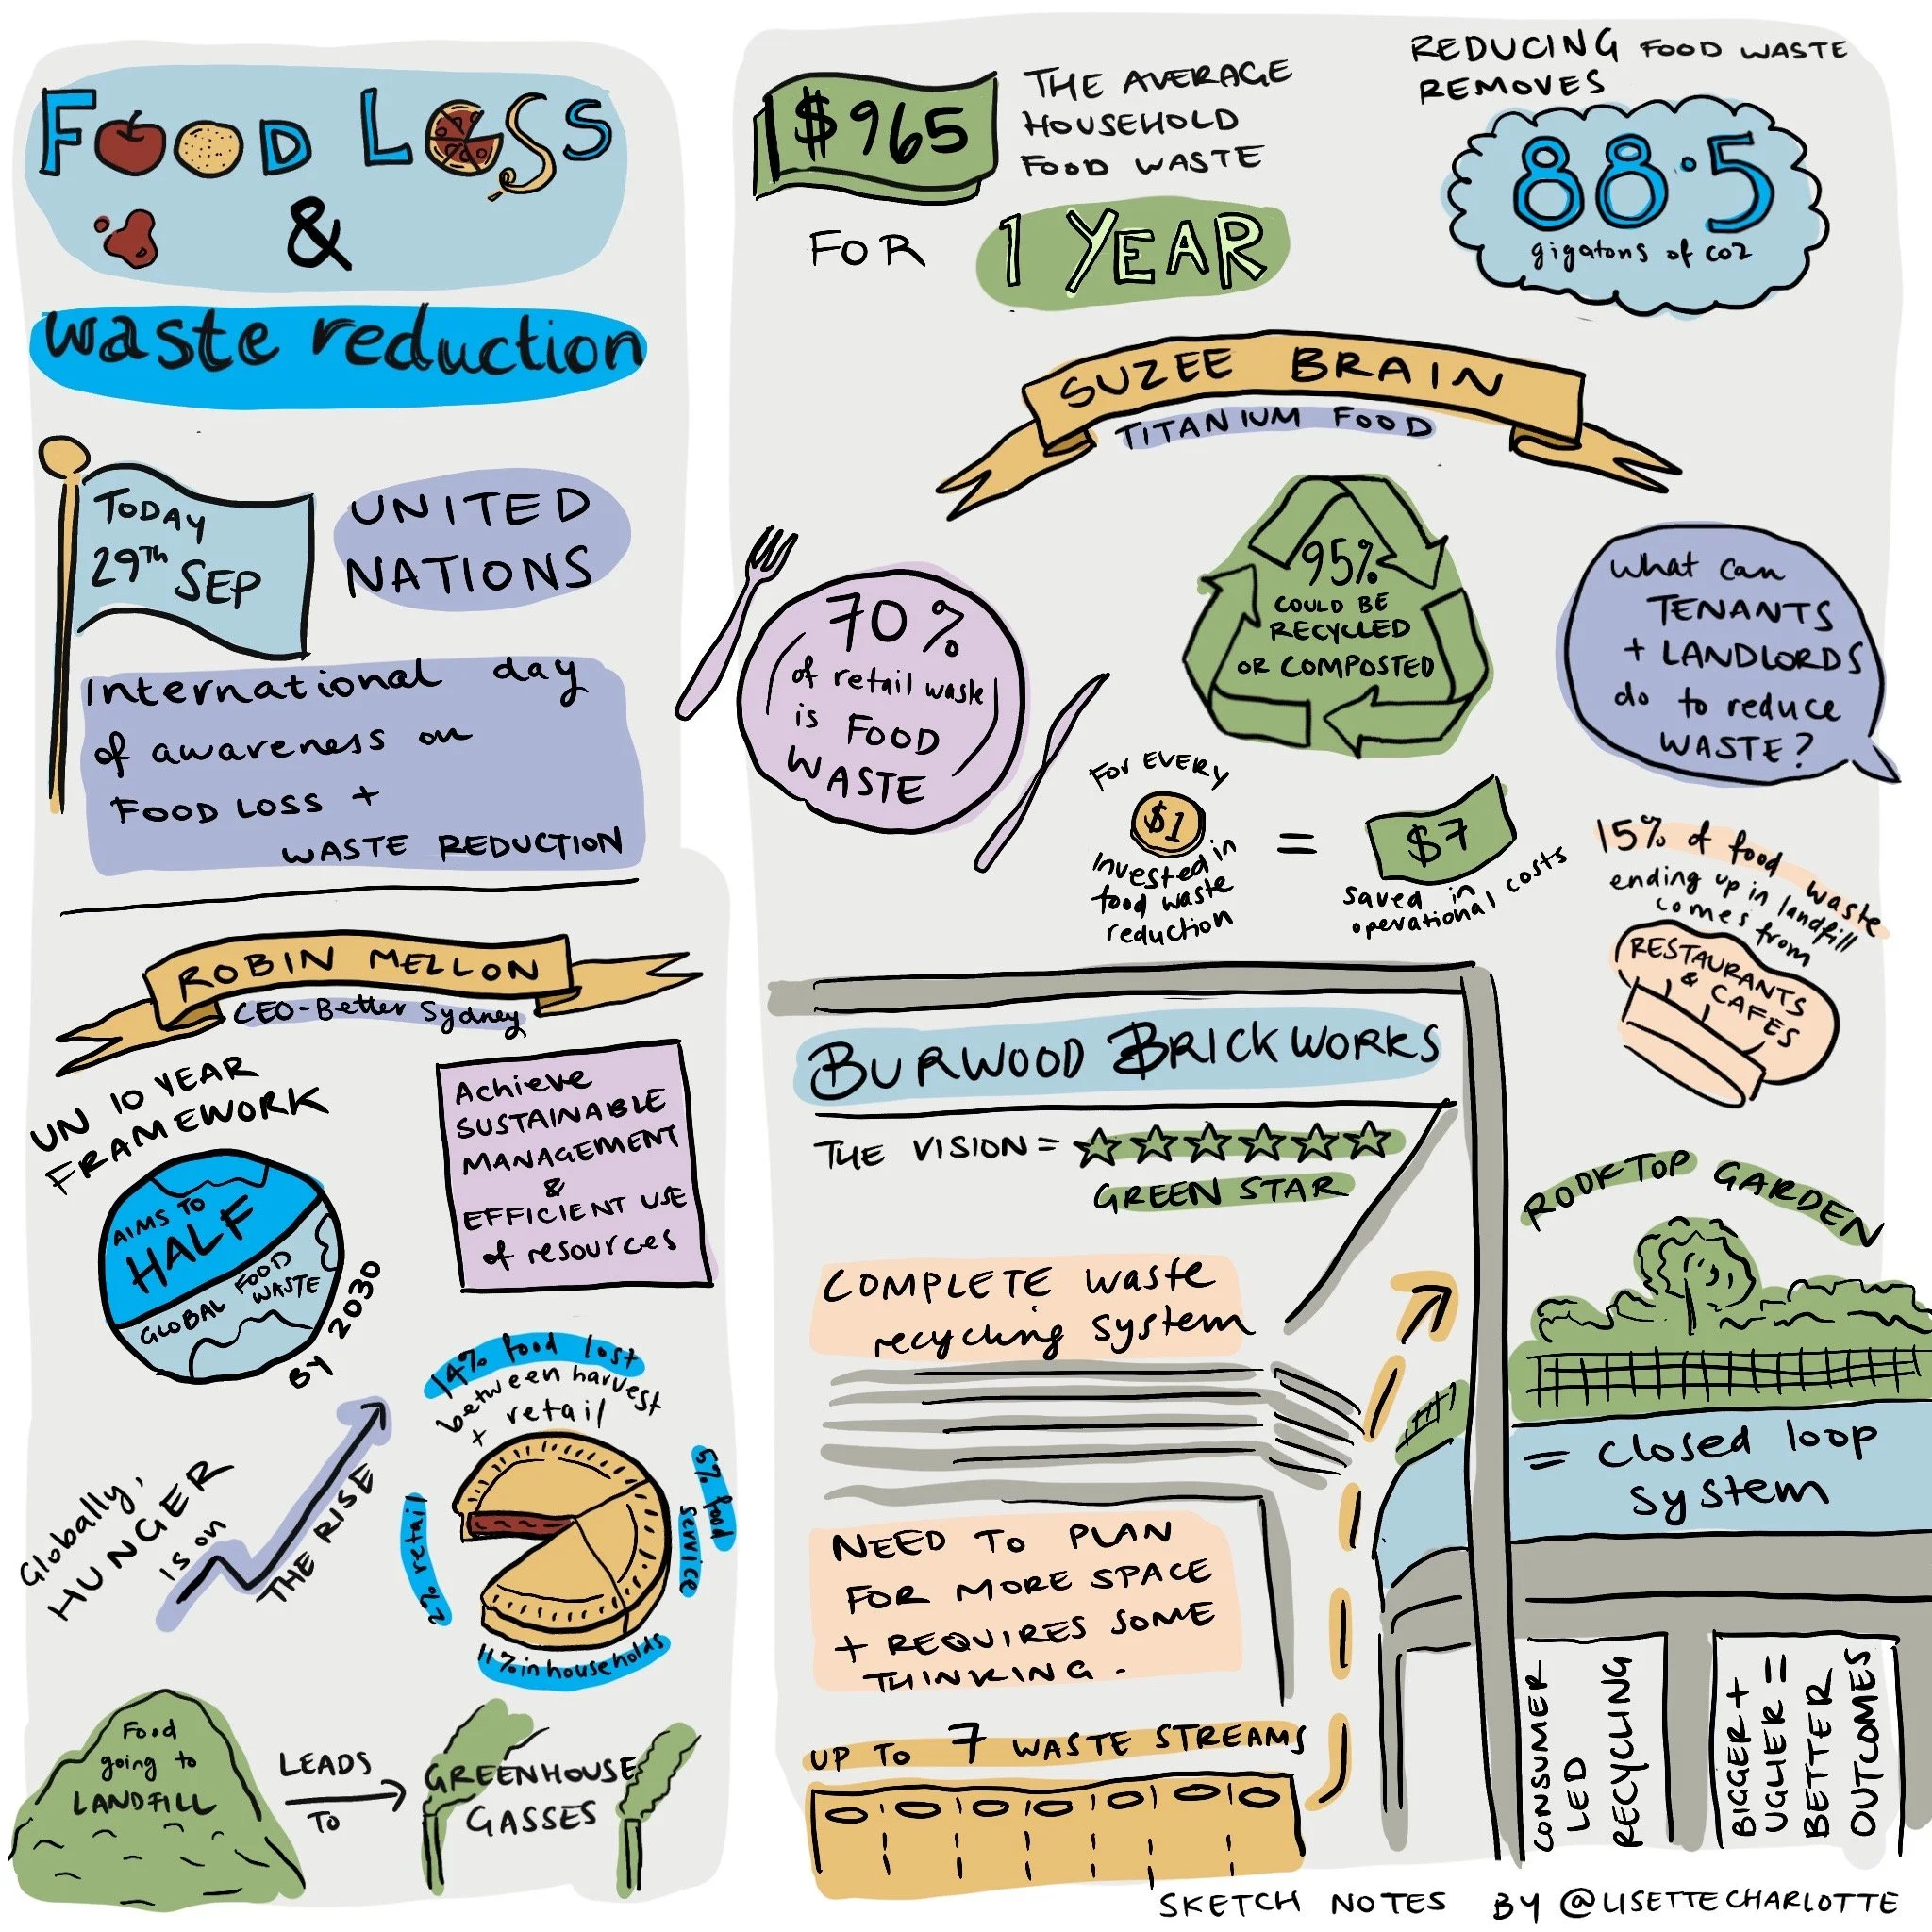 FOOD LOSS
&
waste reduction
TODAY
29TH SEP
UNITED
NATIONS
International day
of awareness on
FOOD LOSS +
WASTE REDUCTION
ROBIN MELLON
CEO-Better Sydney
UN 10 YEAR
FRAMEWORK
AIMS TO
HALF
GLOBAL FOOD
WASTE
BY 2030
Achieve
SUSTAINABLE
MANAGEMENT
&
EFFICIENT USE
of resources
Globally,
HUNGER
is on
THE RISE
14% food lost
between harvest
+ retail
5% food
service
2% retail
11% in households
Food
going to
LANDFILL
LEADS
TO
GREENHOUSE
GASSES
$965
THE AVERAGE
HOUSEHOLD
FOOD WASTE
FOR 1 YEAR
REDUCING FOOD WASTE
REMOVES
88.5
gigatons of co2
SUZEE BRAIN
TITANIUM FOOD
70%
of retail waste
is FOOD
WASTE
95%
COULD BE
RECYCLED
OR COMPOSTED
What can
TENANTS
+ LANDLORDS
do to reduce
WASTE?
For EVERY
$1
invested in
food waste
reduction
=
$7
saved in
operational costs
15% of food waste
ending up in landfill
comes from
RESTAURANTS
& CAFES
BURWOOD BRICKWORKS
THE VISION =
GREEN STAR
COMPLETE waste
recycling system
NEED TO PLAN
FOR MORE SPACE
+ REQUIRES SOME
THINKING.
UP TO 7 WASTE STREAMS
ROOFTOP GARDEN
= closed loop
system
CONSUMER
LED
RECYCLING
BIGGER +
UGLIER =
BETTER
OUTCOMES
SKETCH NOTES BY @LISETTECHARLOTTE